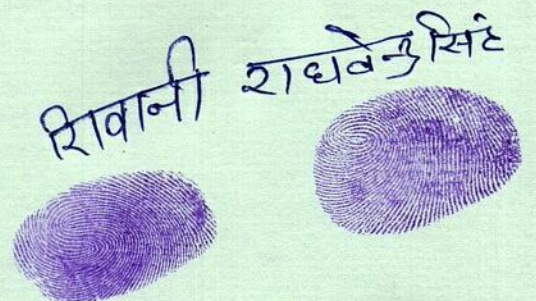 शिवानी राघवेन्द्र सिंह